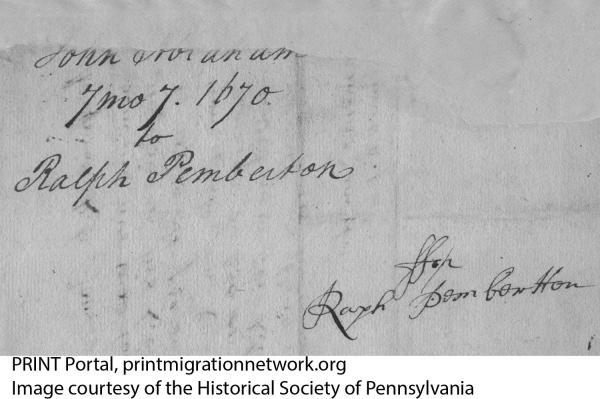 John Abraham
7mo 7. 1670.
to
Ralph Pemberton
ffor
Raph Pembertton
PRINT Portal, printmigrationnetwork.org
Image courtesy of the Historical Society of Pennsylvania